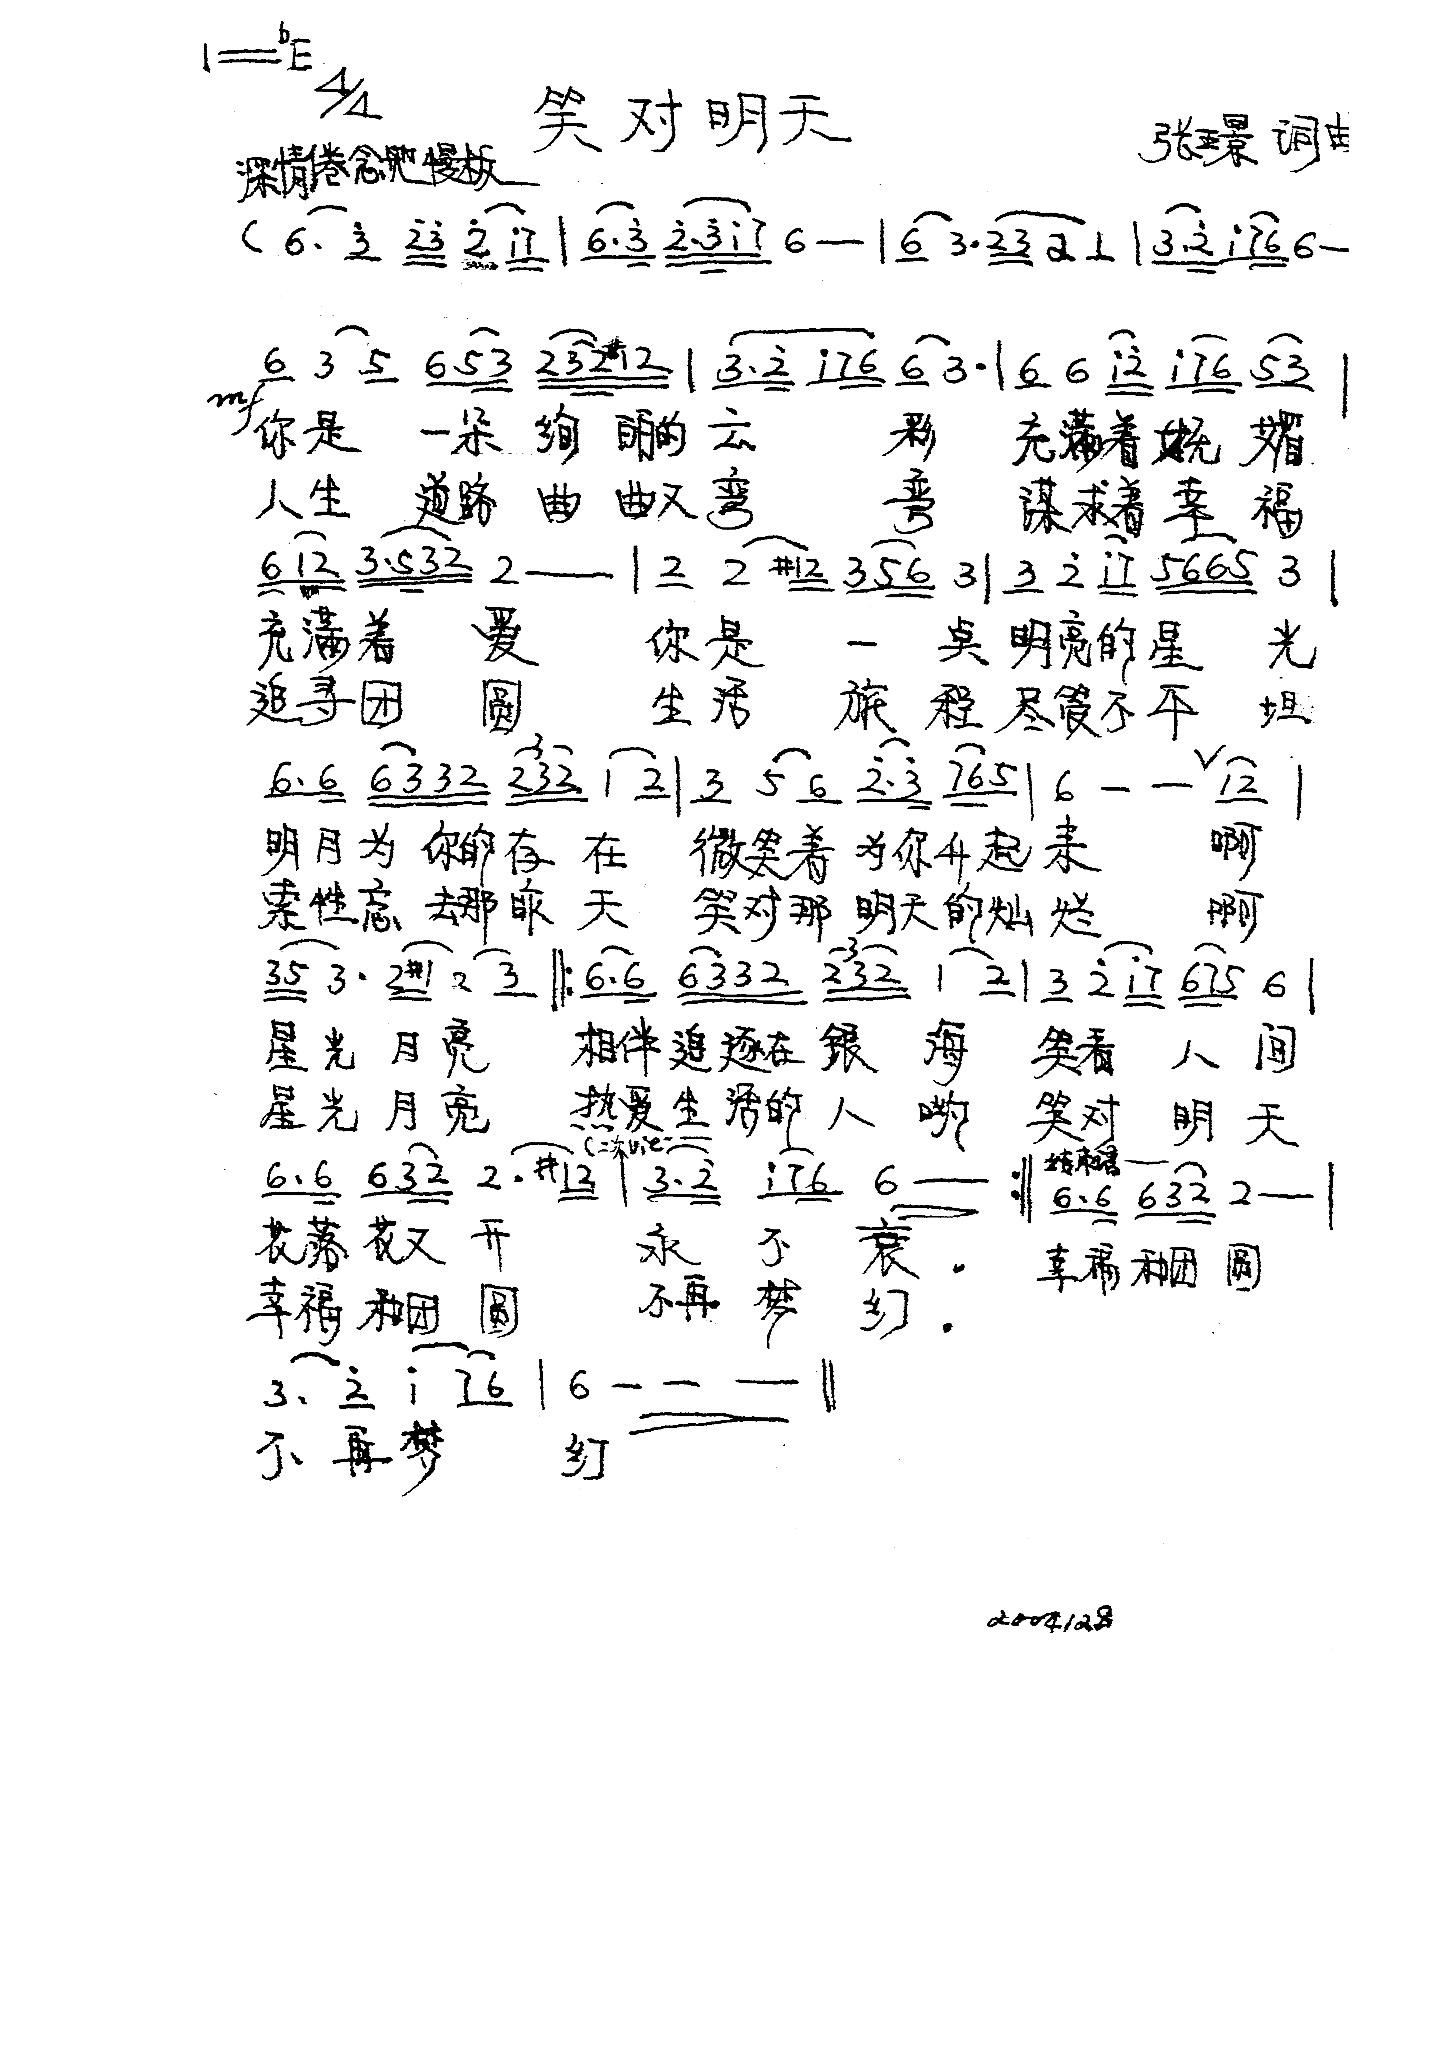 1=♭E
4/4
笑对明天
张璟 词曲
深情 慢板
( 6. 3 23 2 i7 | 6.3 2.3i7 6 — | 6 3.23 2 1 | 3.2 i76 6—
6 3 5 6 53 232#12 | 3.2 i76 6 3. | 6 6 i2 i76 53 |
mf
你是 一朵 绚丽的 云 彩 充满着妩媚
人生 道路 曲曲又弯 弯 谋求着幸福
6 12 3.532 2 —— | 2 2 #12 356 3 | 3 2 i7 5665 3 |
充满着 爱 你是 一点 明亮的星 光
追寻团 圆 生活 旅程 尽管不平 坦
6.6 6332 232 1 2 | 3 5 6 2.3 765 | 6 — — ∨ 12 |
3
明月为你的存在 微笑着为你升起来 啊
索性忘去那昨天 笑对那明天的灿烂 啊
35 3. 2#1 2 3 ‖: 6.6 6332 232 1 2 | 3 2 i7 675 6 |
3
星光月亮 相伴追逐在银海 笑看人间
星光月亮 热爱生活的人哟 笑对明天
(二次
6.6 632 2.#12 | 3.2 i76 6 — :‖ 6.6 632 2 — |
花落花又开 永不衰. 幸福和团圆
幸福和团圆 不再梦幻.
3. 2 i 76 | 6 — — — ‖
不再梦 幻